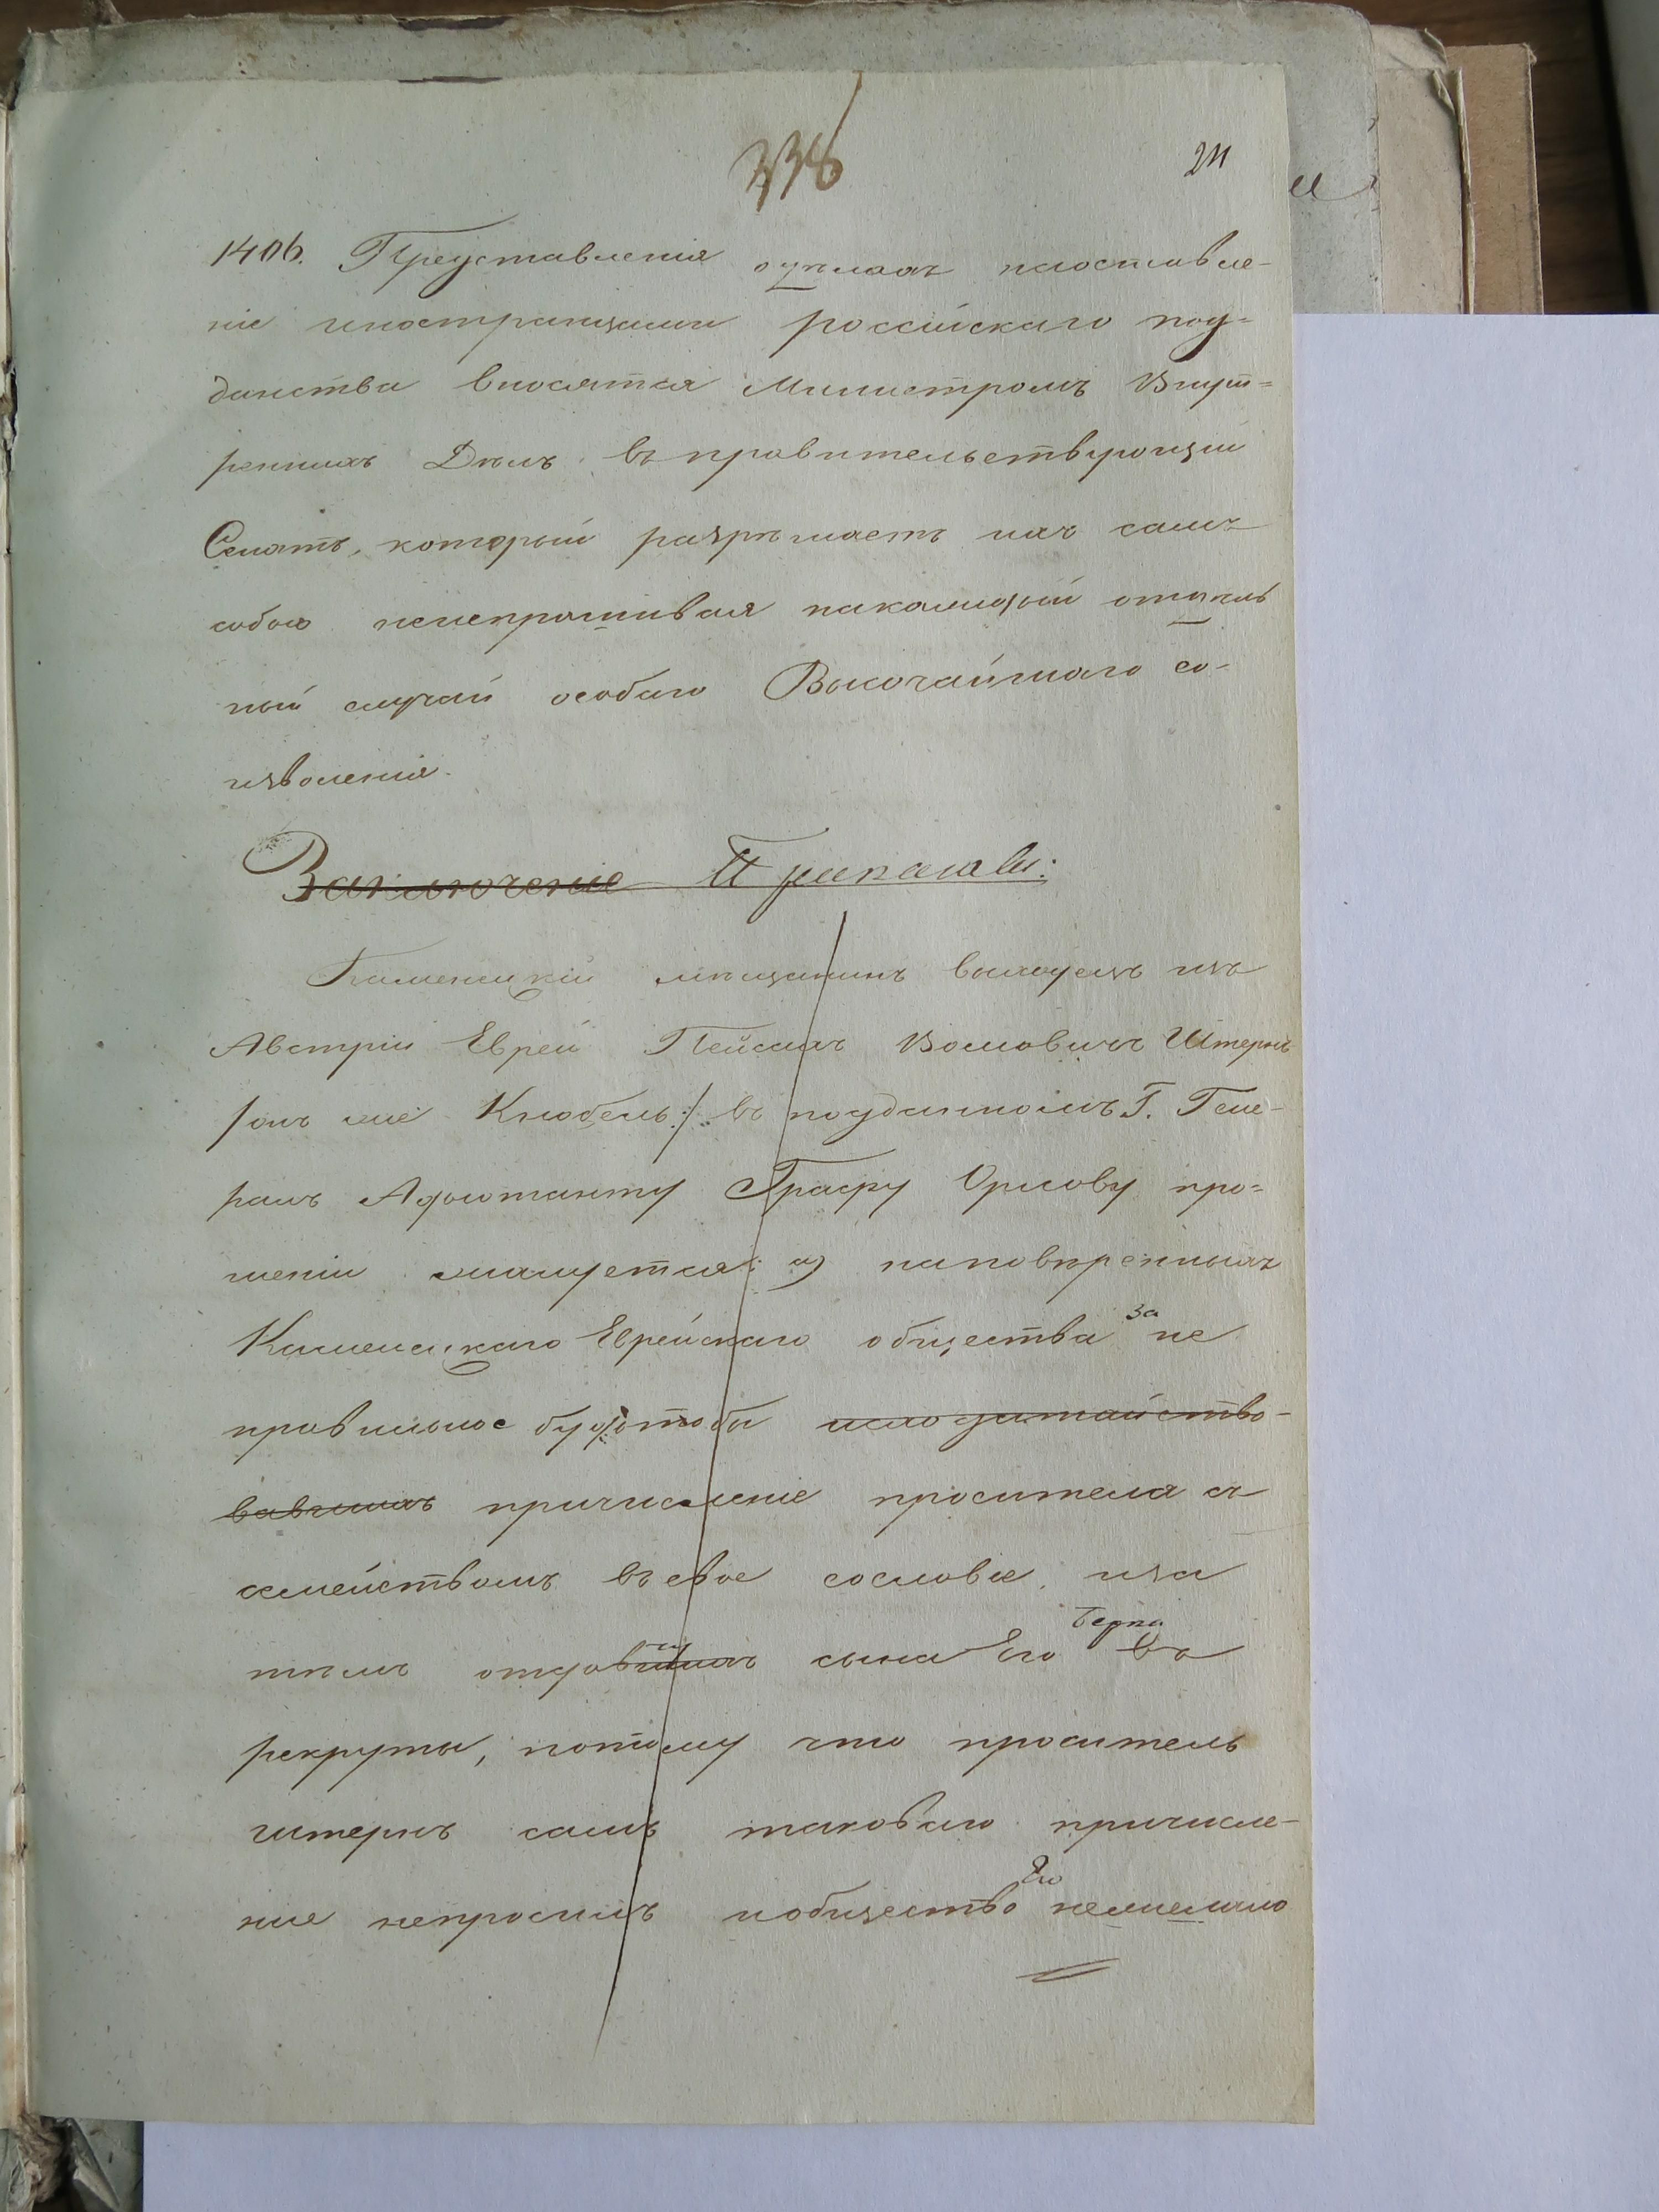 338
211
1406. Представленія одѣлахъ наоставле-
ніе иностранцами россійскаго под-
данства вносятся Министромъ Внут-
реннихъ Дѣлъ въ правительствующій
Сенатъ, который разрѣшаетъ ихъ самъ
собою неиспрашивая накаждый отдѣль
ный случай особаго Высочайшаго со-
изволенія.
Заключение Приказали:
Каменецкій мѣщанинъ выходецъ изъ
Австріи Еврей Пейсахъ Волковичъ Штернъ
/онъ же Кнобель:/ въ поданномъ Г. Гене-
ралъ Адъютанту Графу Орлову про-
шеніи жалуется: а) на повѣренныхъ
Каменецкаго Еврейскаго общества за не
правильное будтобы исходатайство-
вавшихъ причисленіе просителя съ
семействомъ въ свое сословіе, иза
тѣмъ отдавшихъ сына Его Берка въ
рекруты, потому что проситель
штернъ самъ таковаго причисле-
ние непросилъ иобщество Его неимѣло